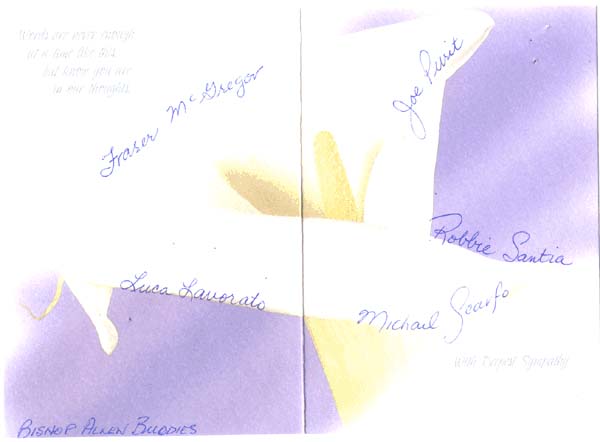 Words are never enough
at a time like this,
but know you are
in our thoughts.
Fraser McGregor
Joe Pusit
Robbie Santia
Luca Lavorato
Michael Scarfo
With Deepest Sympathy
BISHOP ALLEN BUDDIES